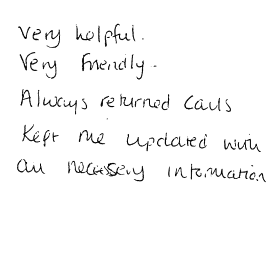 Very helpful.
Very Friendly.
Always returned calls
Kept me updated with
all necessary information